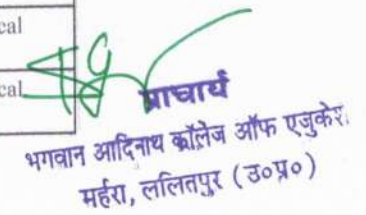 cal
cal
प्राचार्य
भगवान आदिनाथ कॉलेज ऑफ एजुकेश.
महर्रा, ललितपुर (उ०प्र०)